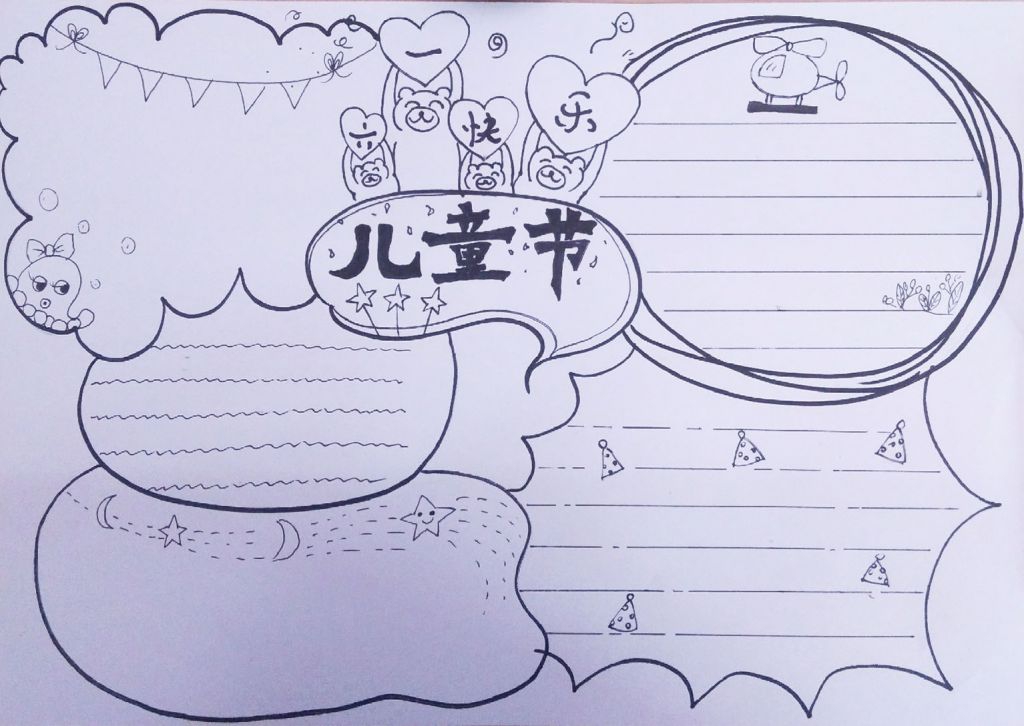 六一快乐
儿童节